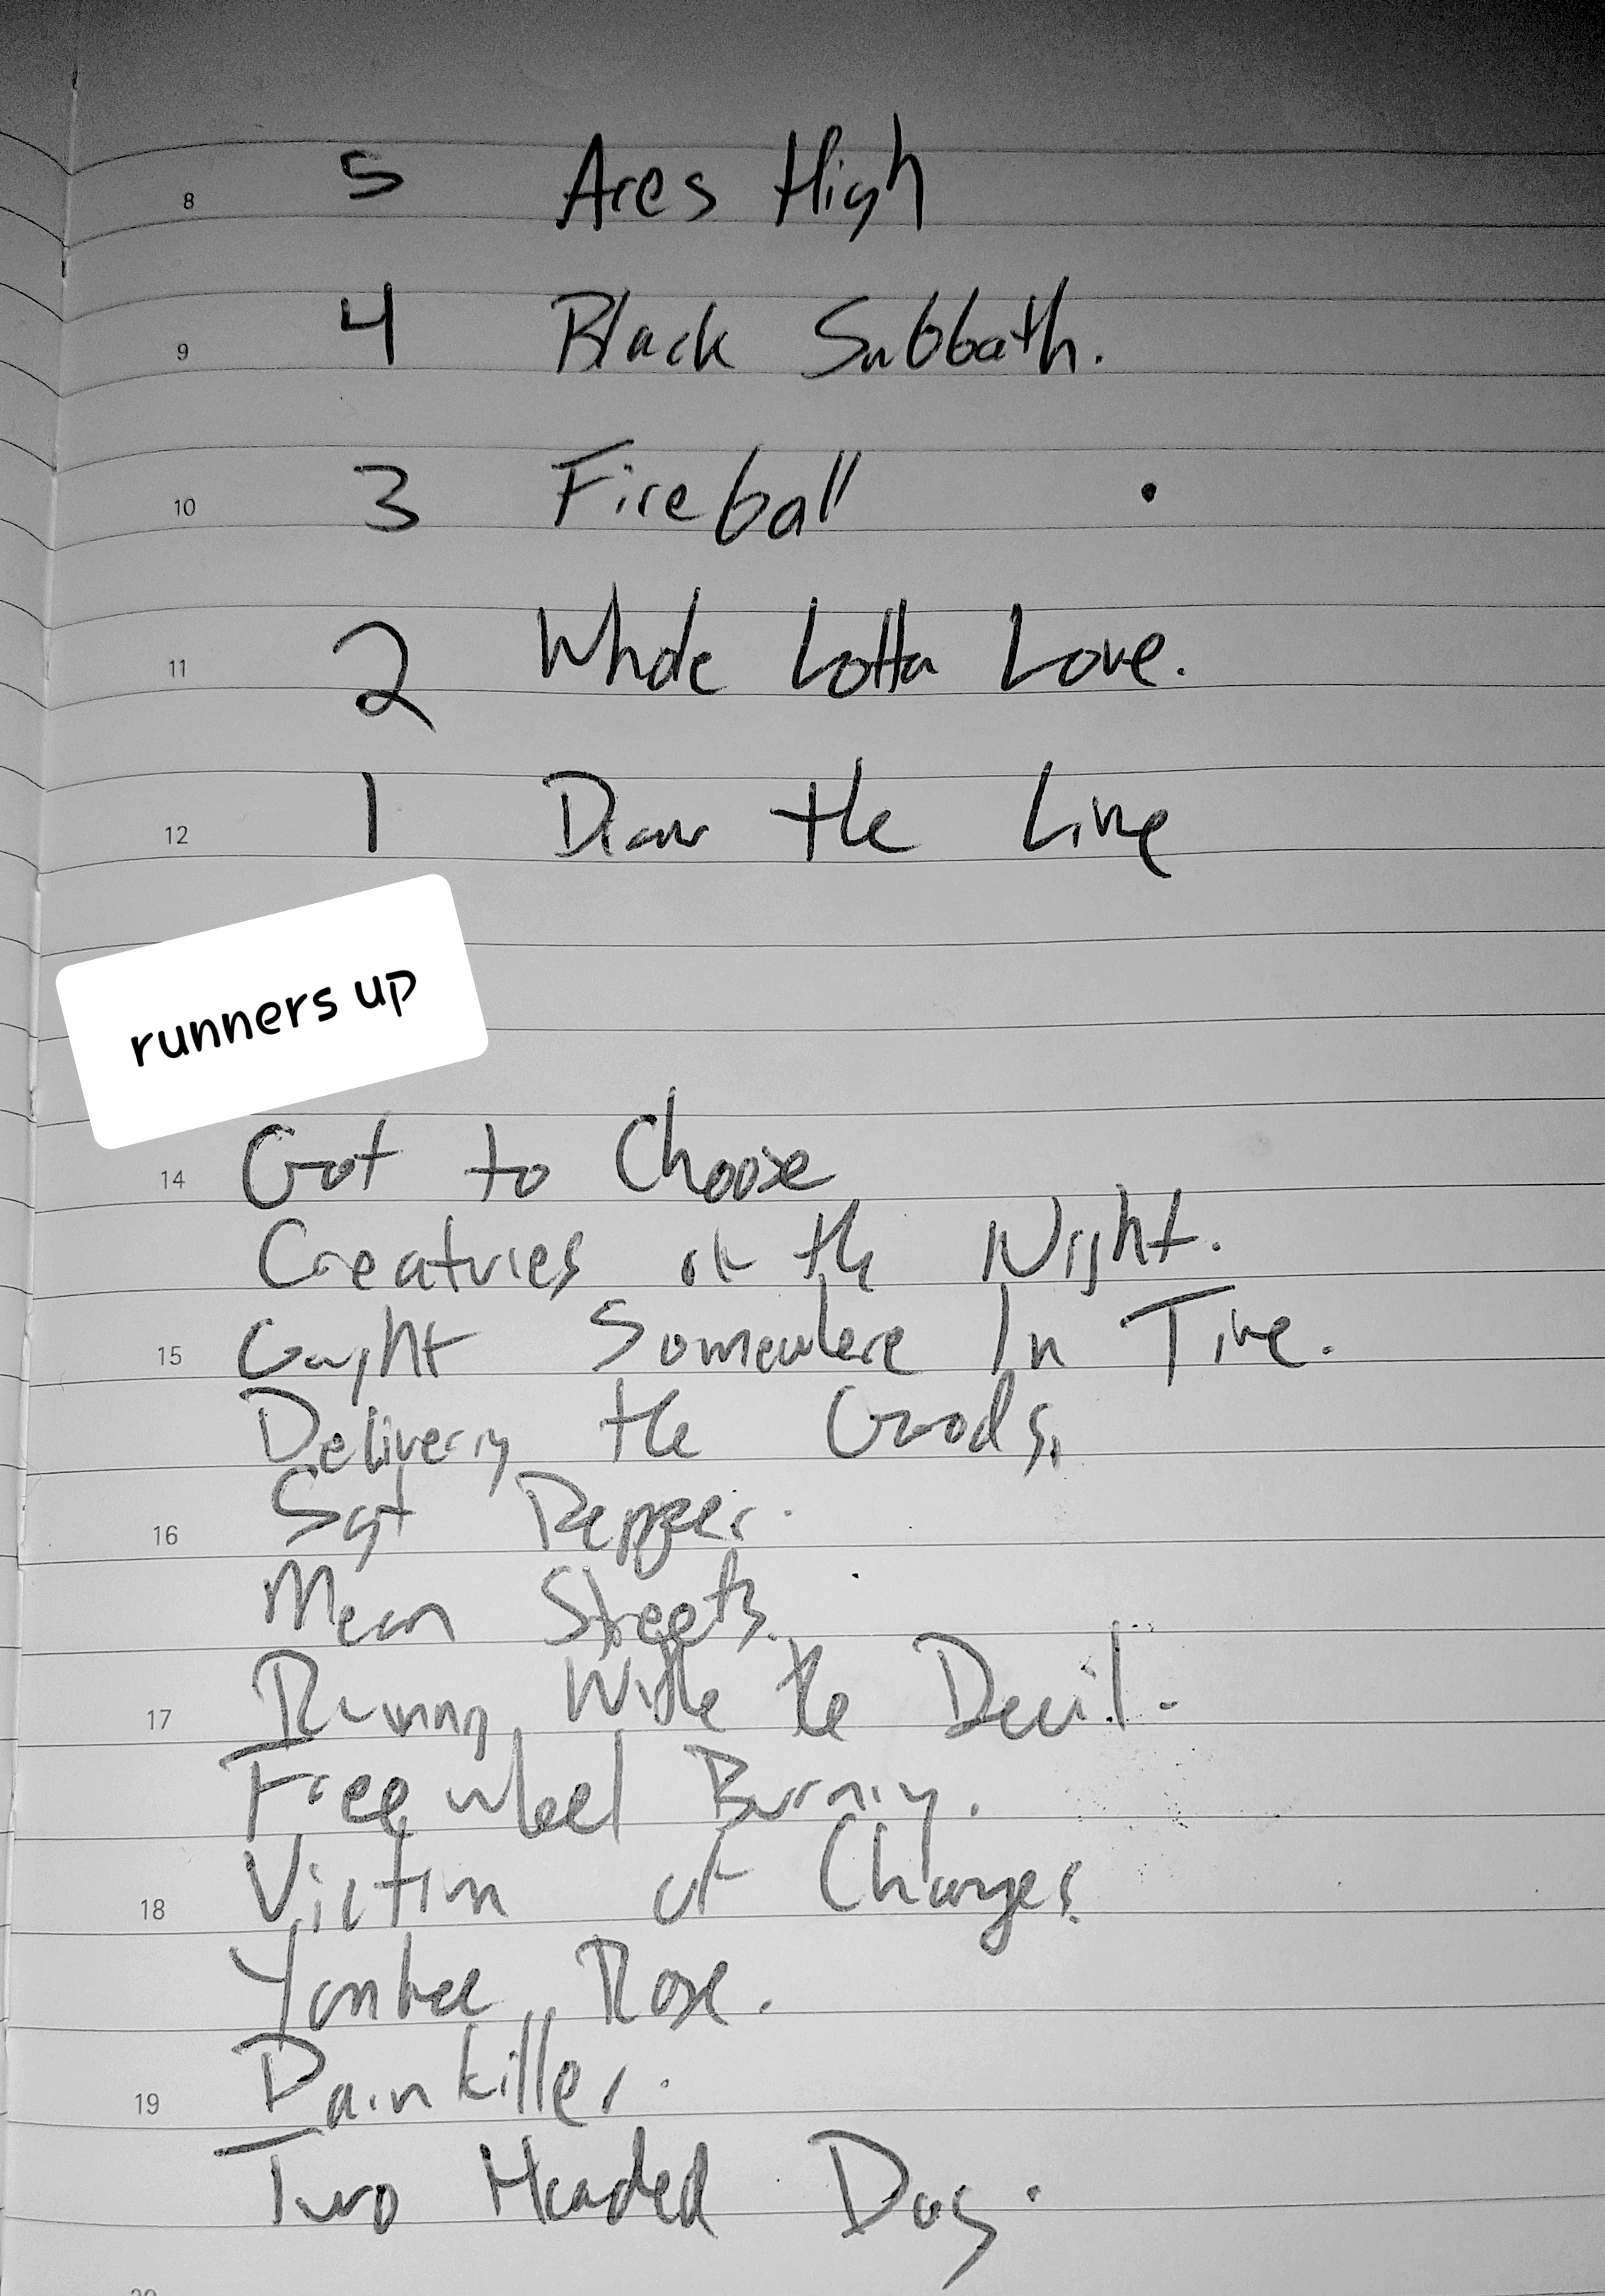 8 5 Aces High
9 4 Black Sabbath.
10 3 Fireball
11 2 Whole Lotta Love.
12 1 Draw the Line
runners up
14 Got to Choose
Creatures of the Night.
15 Caught Somewhere In Time.
Delivering the Goods.
16 Sgt Pepper.
Mean Streets.
17 Running With the Devil.
Freewheel Burning.
18 Victim of Changes.
Yankee Rose.
19 Painkiller.
Two Headed Dog.